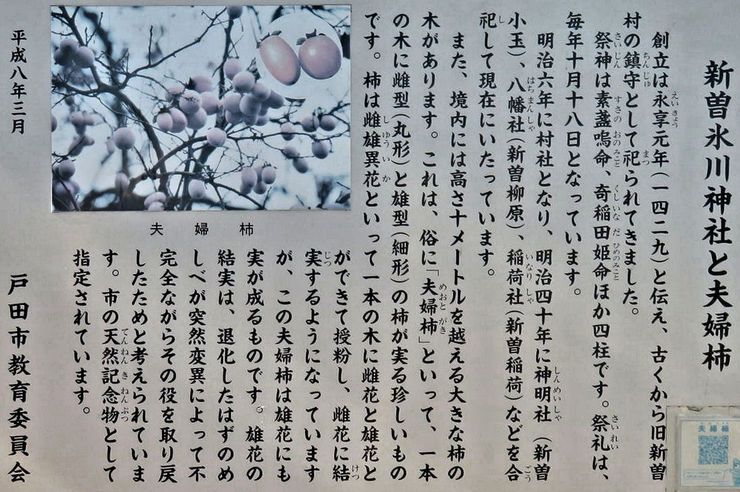 新曽氷川神社と夫婦柿
創立は永享元年(一四二九)と伝え、古くから旧新曽
村の鎮守として祀られてきました。
祭神は素盞嗚命、奇稲田姫命ほか四柱です。祭礼は、
毎年十月十八日となっています。
明治六年に村社となり、明治四十年に神明社(新曽
小玉)、八幡社(新曽柳原)、稲荷社(新曽稲荷)などを合
祀して現在にいたっています。
また、境内には高さ十メートルを越える大きな柿の
木があります。これは、俗に「夫婦柿」といって、一本
の木に雌型(丸形)と雄型(細形)の柿が実る珍しいもの
です。柿は雌雄異花といって一本の木に雌花と雄花と
ができて授粉し、雌花に結
実するようになっています
が、この夫婦柿は雄花にも
実が成るものです。雄花の
結実は、退化したはずのめ
しべが突然変異によって不
完全ながらその役を取り戻
したためと考えられていま
す。市の天然記念物として
指定されています。
夫婦柿
平成八年三月
戸田市教育委員会
夫婦柿